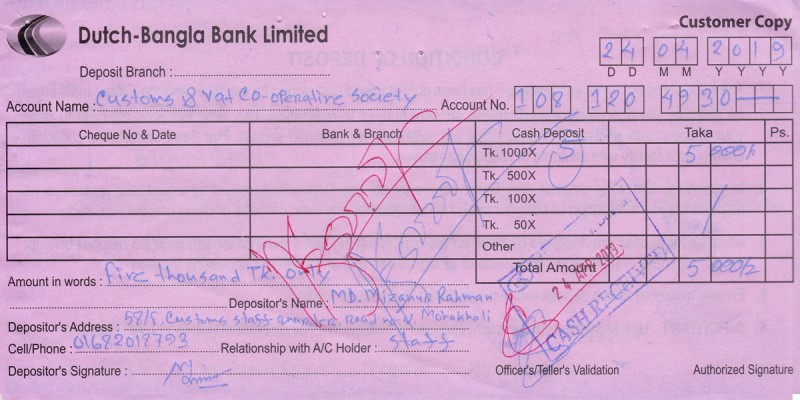 Customer Copy
Dutch-Bangla Bank Limited
24 04 2019
D D M M Y Y Y Y
Deposit Branch :
Account Name : Customs & Vat Co-operative Society Account No. 108 120 4930
Cheque No & Date Bank & Branch Cash Deposit Taka Ps.
Tk. 1000X 5 5 000/-
Tk. 500X
Tk. 100X
Tk. 50X
Other
Total Amount 5 000/-
Amount in words : five thousand Tk. only
Depositor's Name : MD. Mizanur Rahman
Depositor's Address : 58/5, Customs staff quarter, road no- Mohakhali
Cell/Phone : 01682018793 Relationship with A/C Holder : Staff
Depositor's Signature :
24 APR 2019
CASH RECEIVED
Officer's/Teller's Validation Authorized Signature